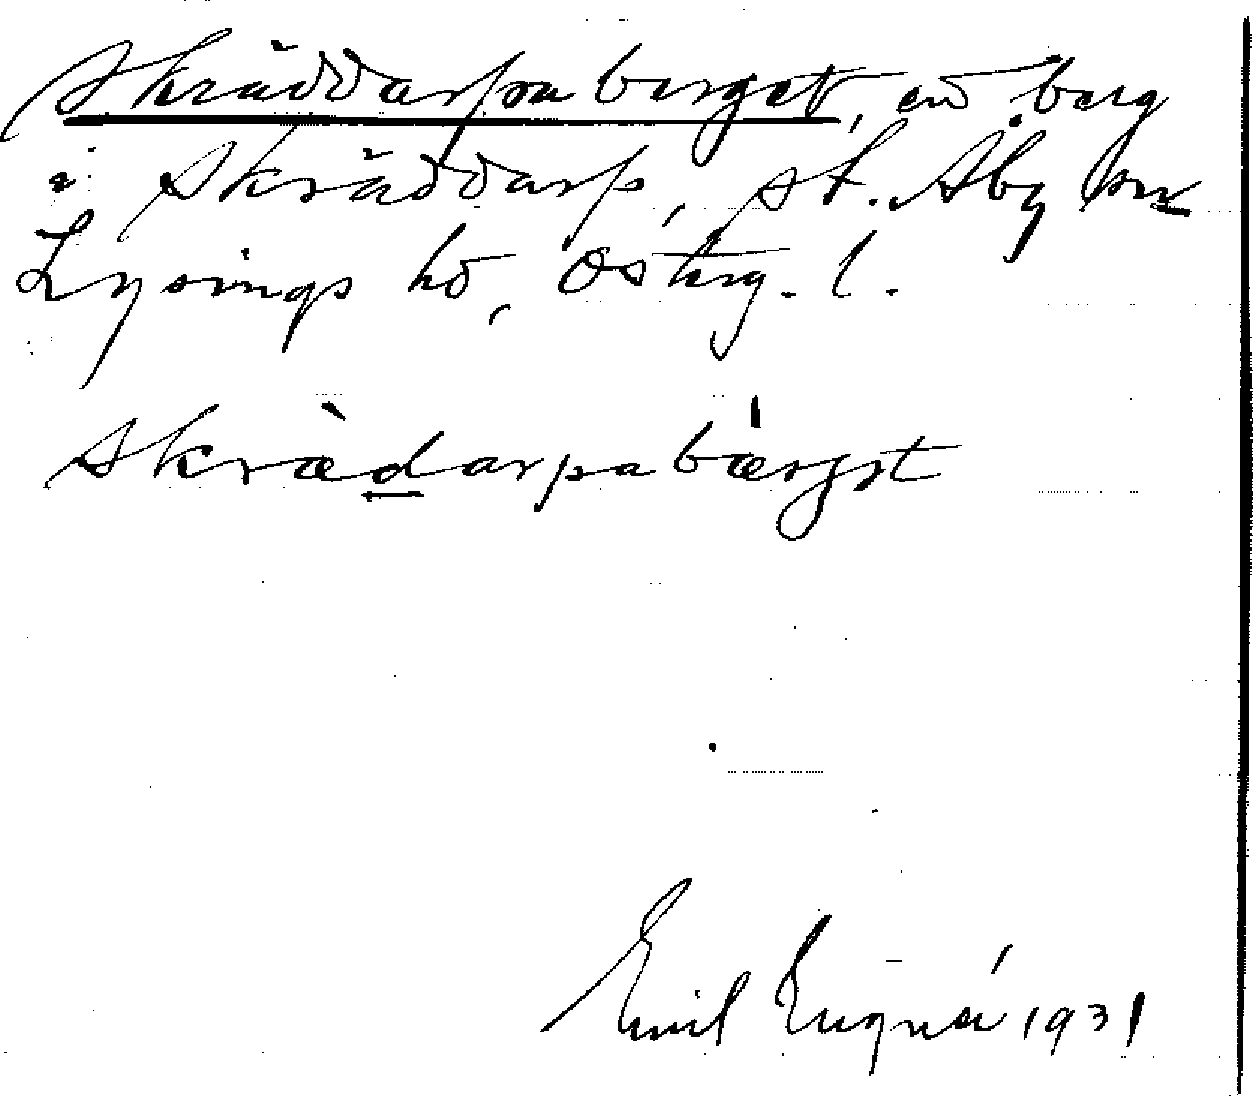 Skräddarpaberget, en berg
i Skräddarp, St. Åby sn
Lysings hd, Österg. l.
skrædarpabærgət
Emil 1931